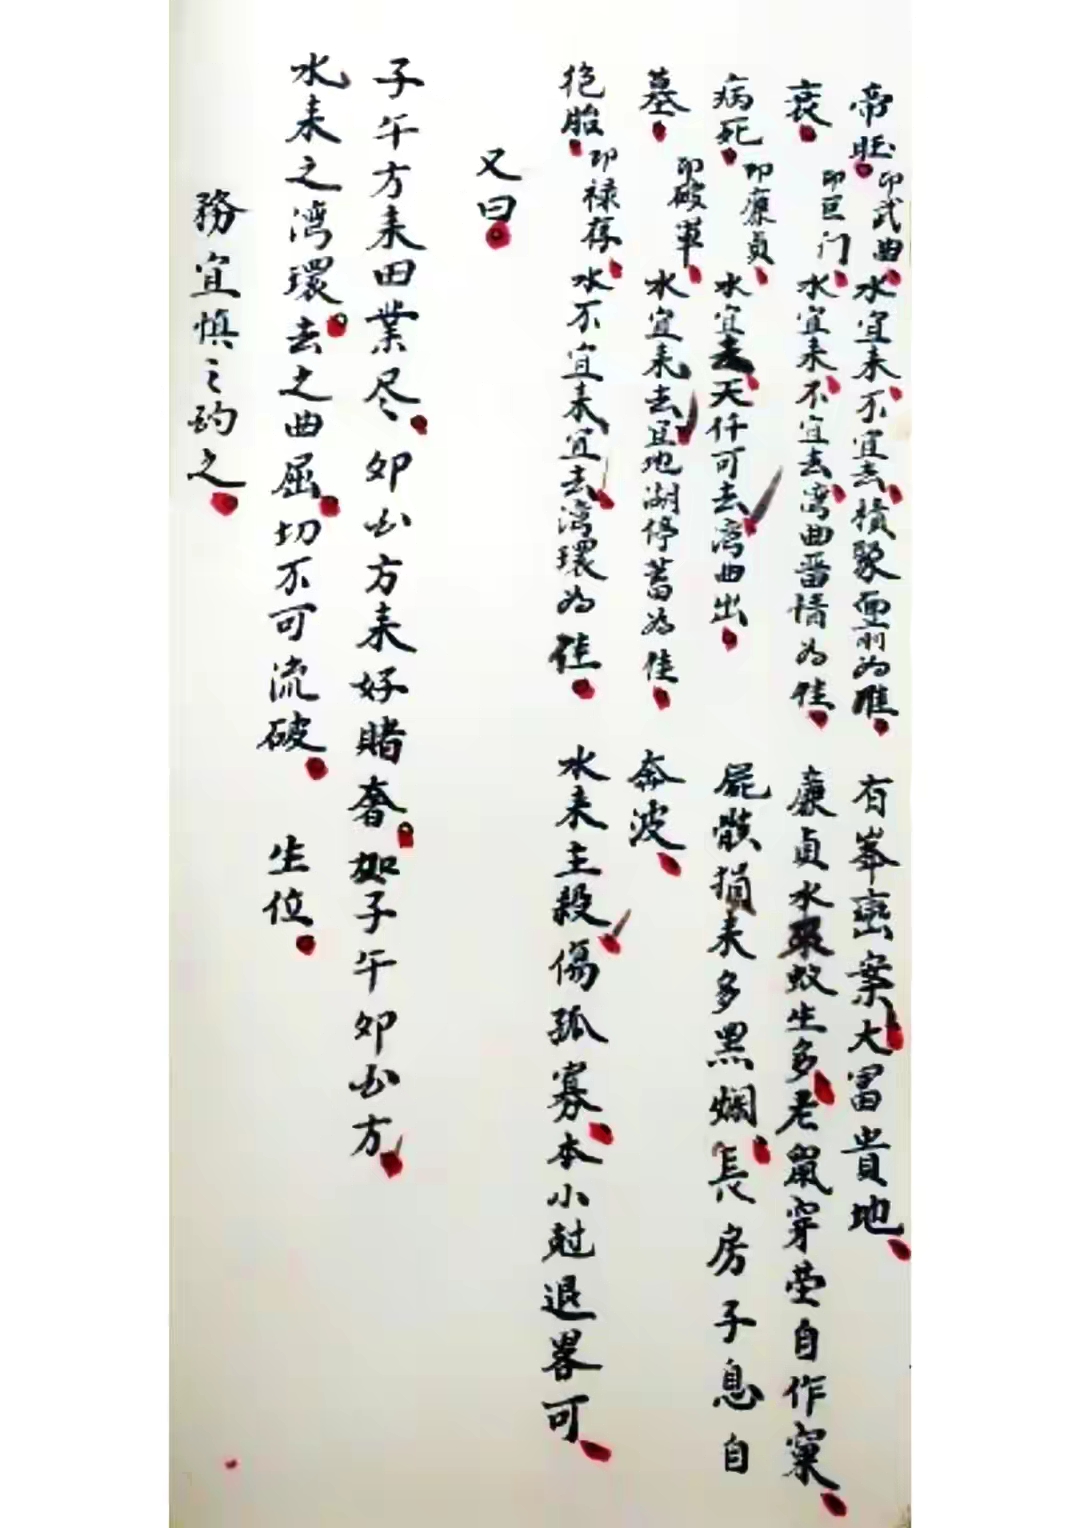 帝旺 即武曲 水宜来不宜去横聚面前为佳 有峯巒案大富貴地
衰 即巨门 水宜来不宜去湾曲番情为佳 廉貞水来蚁生多老鼠穿茔自作窠
病死 即廉貞 水宜去天仟可去湾曲出 屍骸損来多黑爛長房子息自
墓 即破軍 水宜来去宜地湖停蓄为佳 奔波
绝胎 即禄存 水不宜来宜去湾環为佳 水来主殺傷孤寡本小尅退畧可
又曰
子午方来田業尽卯酉方来好賭奢如子午卯酉方
水来之湾環去之曲屈切不可流破 生位
務宜慎之酌之